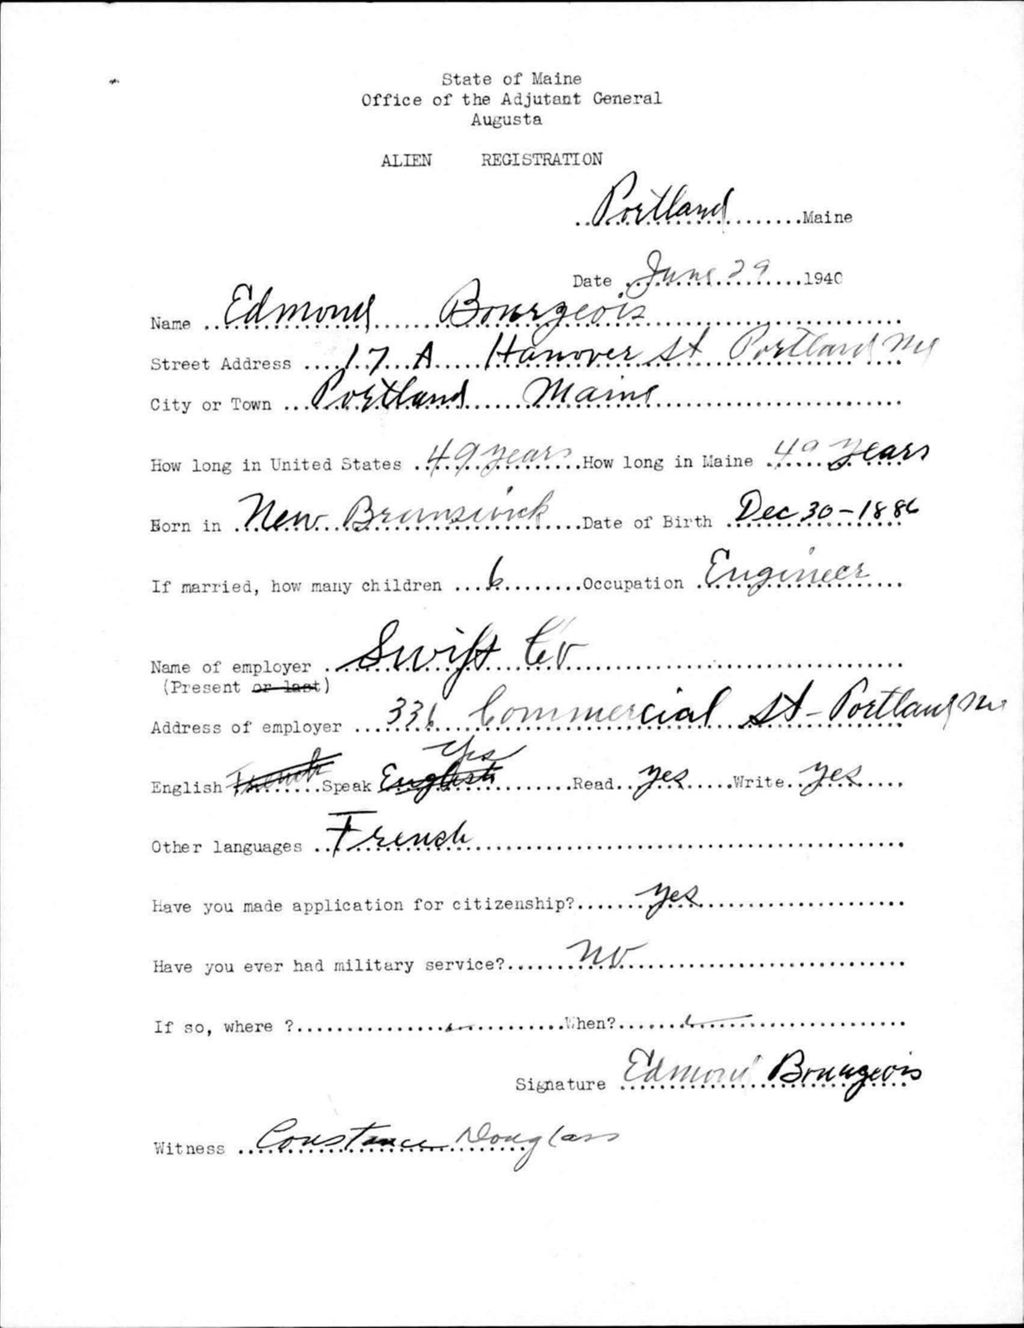 State of Maine
Office of the Adjutant General
Augusta
ALIEN REGISTRATION
Portland Maine
Date June 29 1940
Name Edmond Bourgeois
Street Address 17 A Hanover St Portland Me
City or Town Portland Maine
How long in United States 49 years How long in Maine 49 years
Born in New Brunswick Date of Birth Dec 30-1886
If married, how many children 6 Occupation Engineer
Name of employer Swift Co
(Present or last)
Address of employer 336 Commercial St - Portland Me
Yes
English French Speak English Read yes Write yes
Other languages French
Have you made application for citizenship? yes
Have you ever had military service? no
If so, where ? When?
Signature Edmond Bourgeois
Witness Constance Douglass